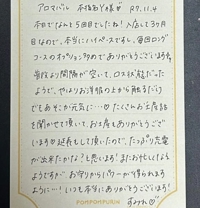 アロマバル 本指名Y様♡ R7.11.4
本日でなんと5回目でしたね！入店して3ヶ月
目なので、本当にハイペースですし、毎回ロング
コースのオプション多めでありがとうございます。
普段より間隔が空いて、ロス状態だった
ようで、やはりお洋服の上から触るだけ
でもあそこが元気に…♡たくさんお土産話
を聞かせて頂いて、お土産もありがとうござ
います♡延長もして頂いたので、たっぷり充電
が出来たかな？と思います！またお忙しくなり
ますが、お守りからパワーが得られます
ように…！いつも本当にありがとうございます！
POMPOMPURIN すみれ♡